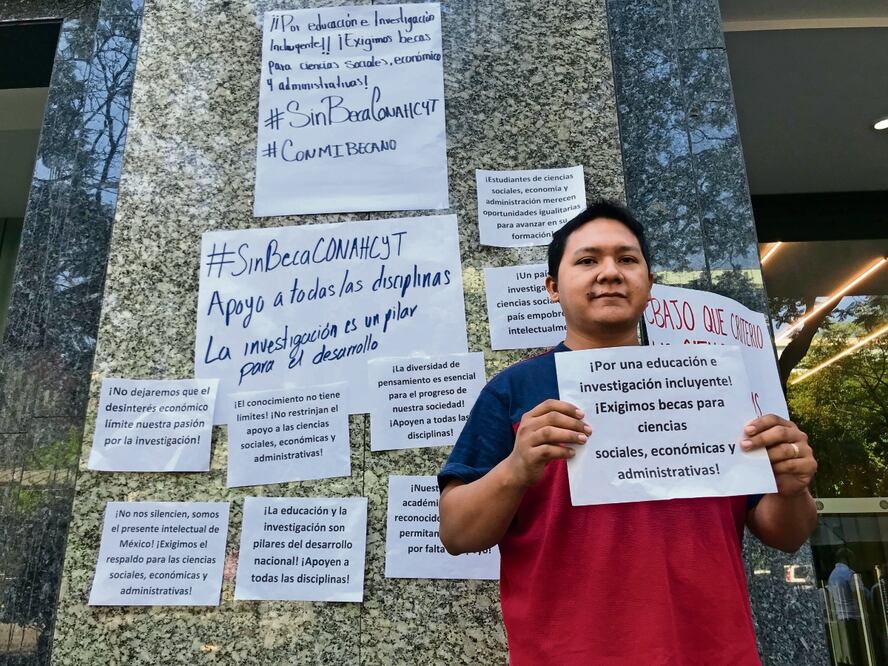 ¡¡Por educación e Investigación
Incluyente!! ¡Exigimos becas
para ciencias sociales, económico
y administrativas!
#SinBecaCONAHCYT
#CONMIBECANO
¡Estudiantes de ciencias
sociales, economía y
administración merecen
oportunidades igualitarias
para avanzar en su
formación!
#SinBecaCONAHCYT
Apoyo a todas las disciplinas
La investigación es un pilar
para el desarrollo
¡Un país
investiga
ciencias sociale
país empobre
intelectualme
BAJO QUE CRITERIO
¡No dejaremos que el
desinterés económico
límite nuestra pasión
por la investigación!
¡El conocimiento no tiene
límites! ¡No restrinjan el
apoyo a las ciencias
sociales, económicas y
administrativas!
¡La diversidad de
pensamiento es esencial
para el progreso de
nuestra sociedad!
¡Apoyen a todas las
disciplinas!
¡Por una educación e
investigación incluyente!
¡Exigimos becas para
ciencias
sociales, económicas y
administrativas!
¡No nos silencien, somos
el presente intelectual de
México! ¡Exigimos el
respaldo para las ciencias
sociales, económicas y
administrativas!
¡La educación y la
investigación son
pilares del desarrollo
nacional! ¡Apoyen a
todas las disciplinas!
¡Nuest
académi
reconocido
permitan
por falta